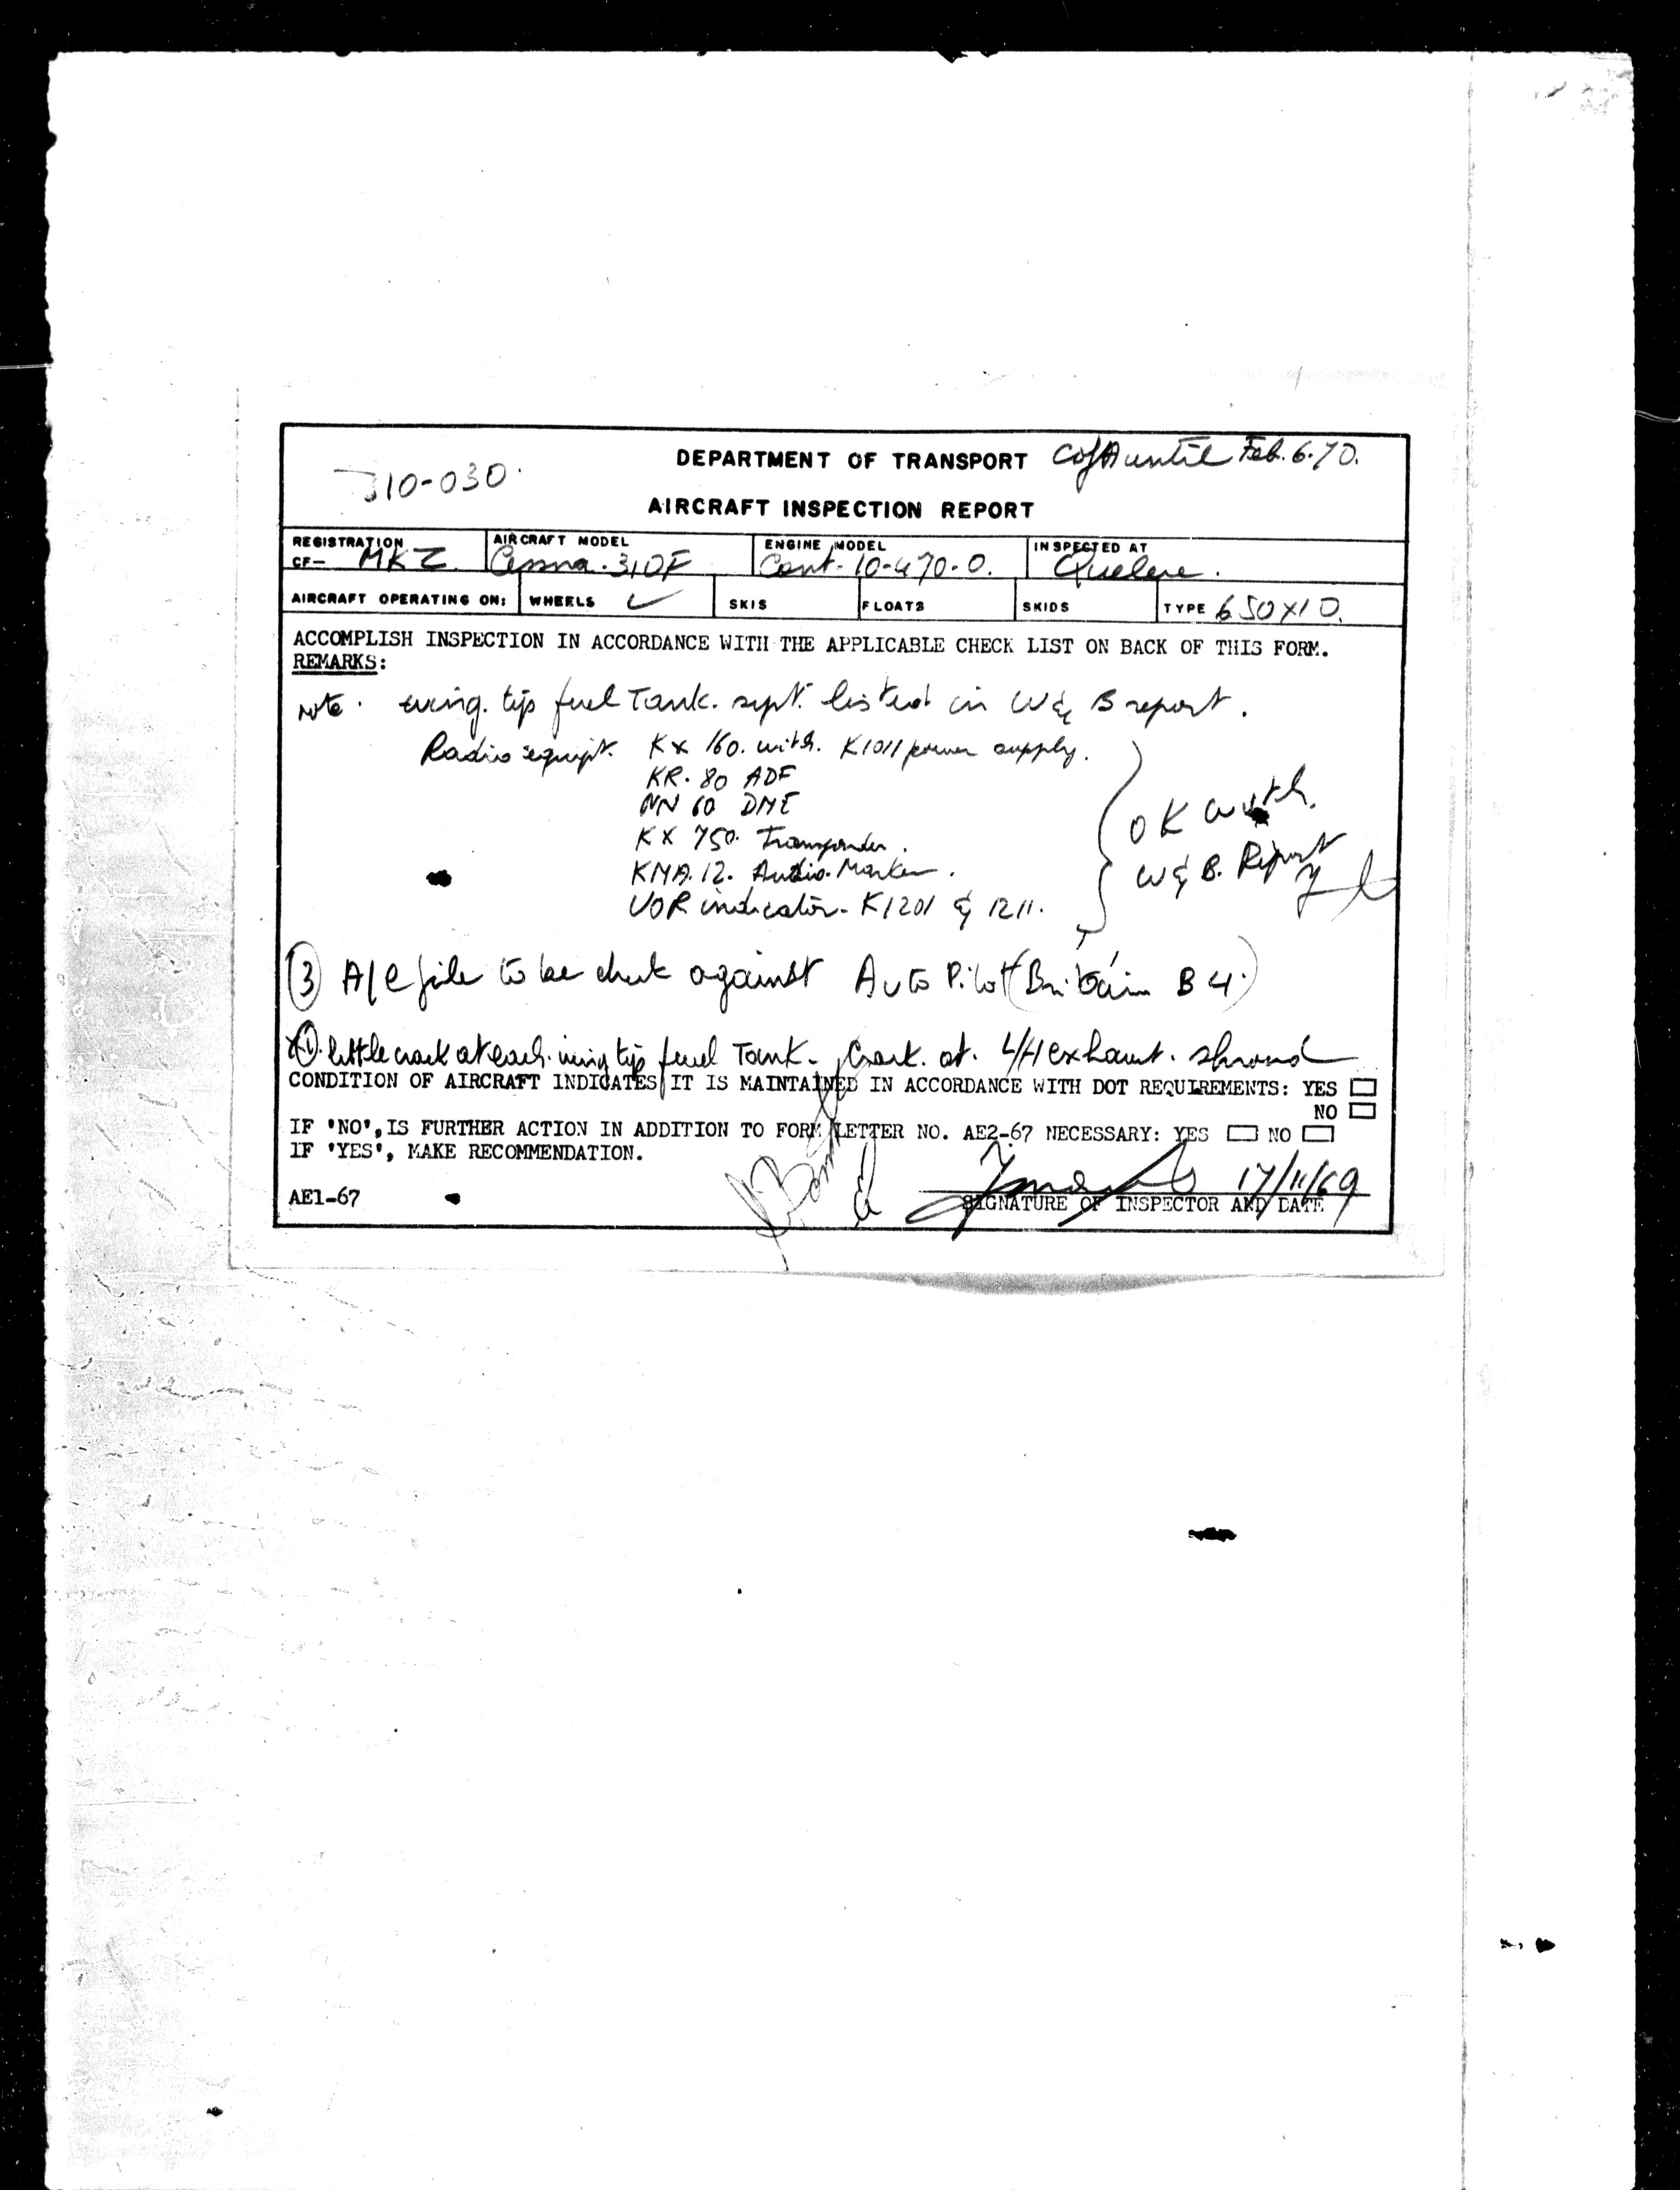 DEPARTMENT OF TRANSPORT CofA until Feb. 6. 70.
310-030.
AIRCRAFT INSPECTION REPORT
REGISTRATION AIRCRAFT MODEL ENGINE MODEL INSPECTED AT
CF- MKZ Cessna. 310F Cont- IO-470-D. Quebec.
AIRCRAFT OPERATING ON: WHEELS ✓ SKIS FLOATS SKIDS TYPE 650X10.
ACCOMPLISH INSPECTION IN ACCORDANCE WITH THE APPLICABLE CHECK LIST ON BACK OF THIS FORM.
REMARKS:
Note. wing. tip fuel Tank. listed in W & B report.
Radio equipt. KX 160. with. K1011 power supply.
KR. 80 ADF
NN 60 DME
KX 750. Transponder.
KMA. 12. Audio. Marker.
VOR indicator- K1201 & 1211.
OK with.
W & B. Report
3 A/C file to be check against Auto Pilot (Britain B4.)
little crack at each. wing tip fuel Tank- Crack. at. L/H exhaust. shroud
CONDITION OF AIRCRAFT INDICATES IT IS MAINTAINED IN ACCORDANCE WITH DOT REQUIREMENTS: YES
NO
IF 'NO', IS FURTHER ACTION IN ADDITION TO FORM LETTER NO. AE2-67 NECESSARY: YES NO
IF 'YES', MAKE RECOMMENDATION.
17/11/69
AE1-67 SIGNATURE OF INSPECTOR AND DATE